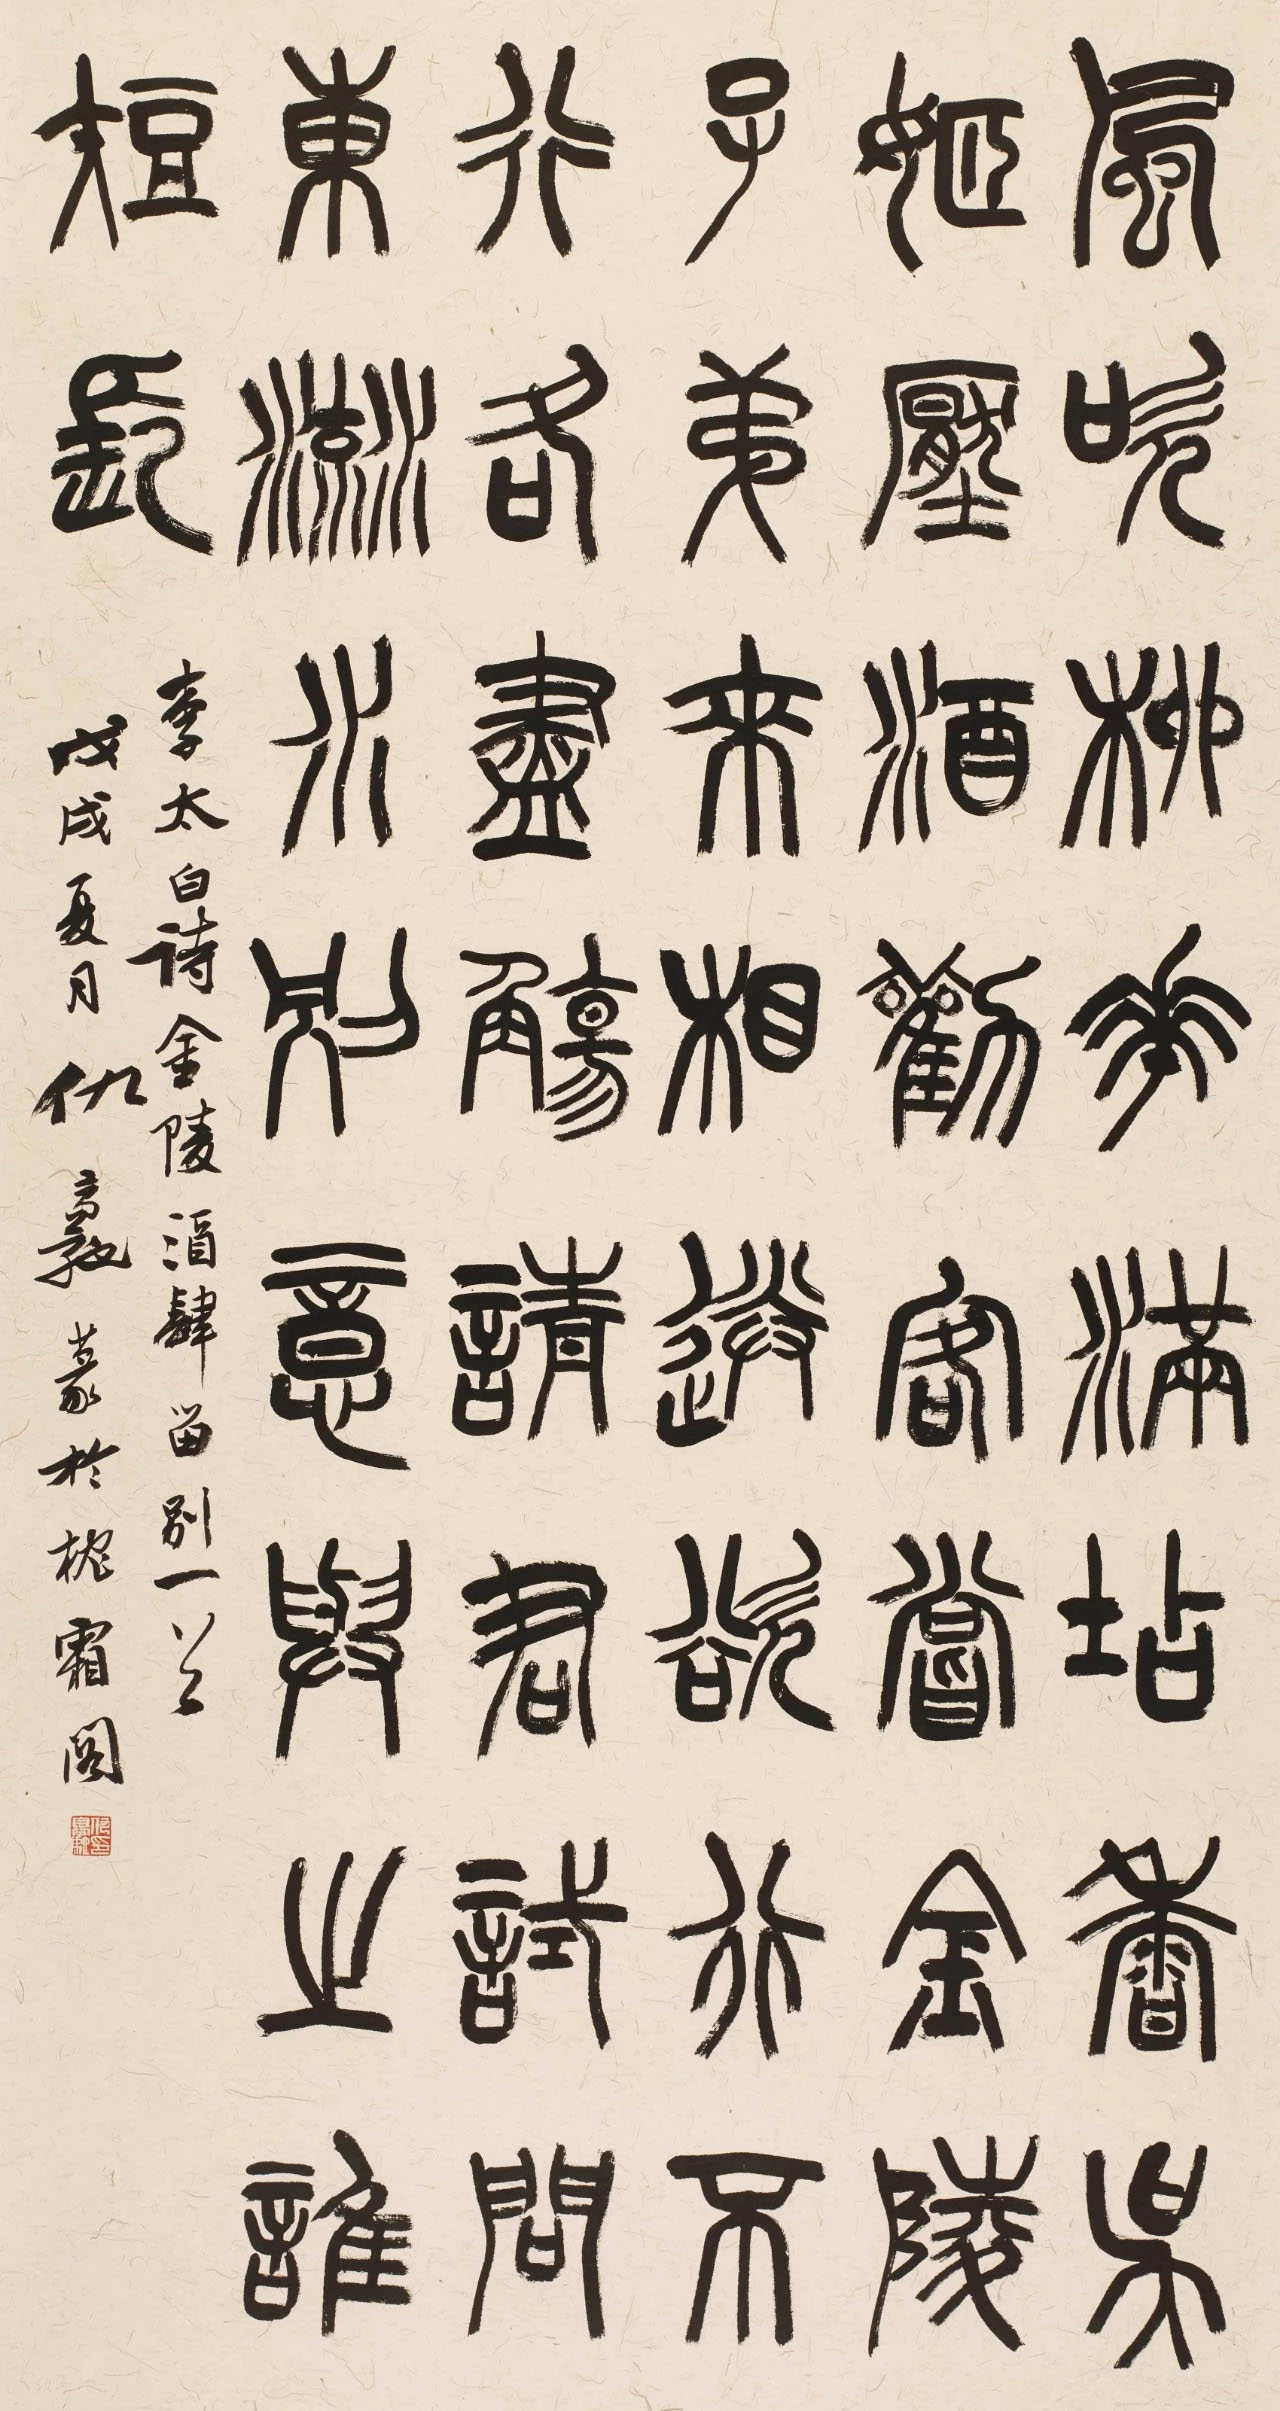 風吹柳花滿坫香吳
姬壓酒勸客嘗金陵
子弟來相送欲行不
行各盡觴請君試問
東流水別意與之誰
短長
李太白詩金陵酒肆留別一首
戊戌夏月仇高馳篆於枕霜閣